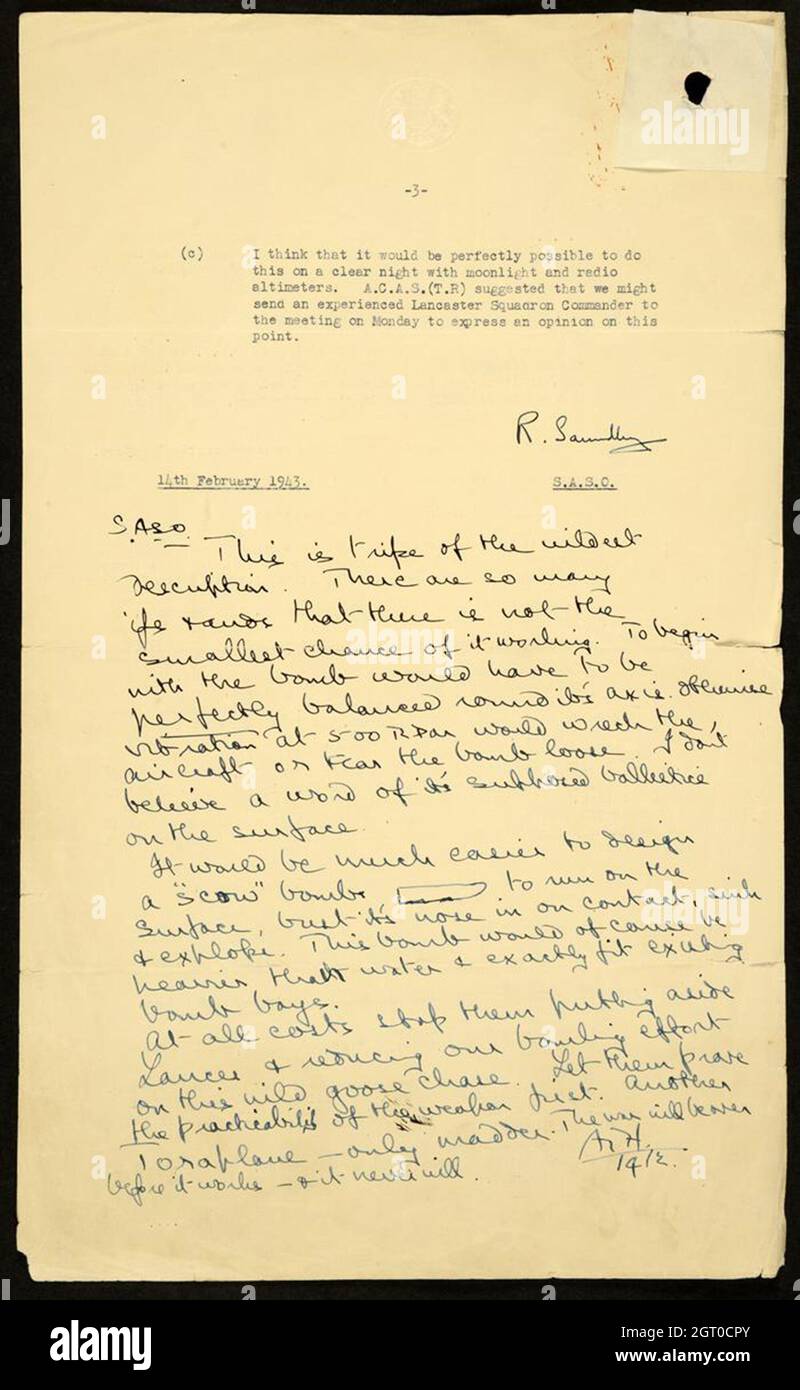 -3-
(c) I think that it would be perfectly possible to do
this on a clear night with moonlight and radio
altimeters. A.C.A.S.(T.R) suggested that we might
send an experienced Lancaster Squadron Commander to
the meeting on Monday to express an opinion on this
point.
R. Saundby
14th February 1943. S.A.S.O.
S.A.S.O.
This is tripe of the wildest
description. There are so many
ifs & ands that there is not the
smallest chance of it working. To begin
with the bomb would have to be
perfectly balanced round it's axis otherwise
vibration at 500 RPM would wreck the
aircraft or tear the bomb loose. I don't
believe a word of it's supposed ballistics
on the surface.
It would be much easier to design
a "scow" bomb, to run on the
surface, bust it's nose in on contact, sink
& explode. This bomb would of course be
heavier than water & exactly fit existing
bomb bays.
At all costs stop them putting aside
Lancs & reducing our bombing effort
on this wild goose chase. Let them prove
the practicability of the weapon first. Another
Toraplane – only madder. The war will be over
before it works – & it never will.
A.T.H.
14/2.
alamy
Image ID: 2GT0CPY
www.alamy.com